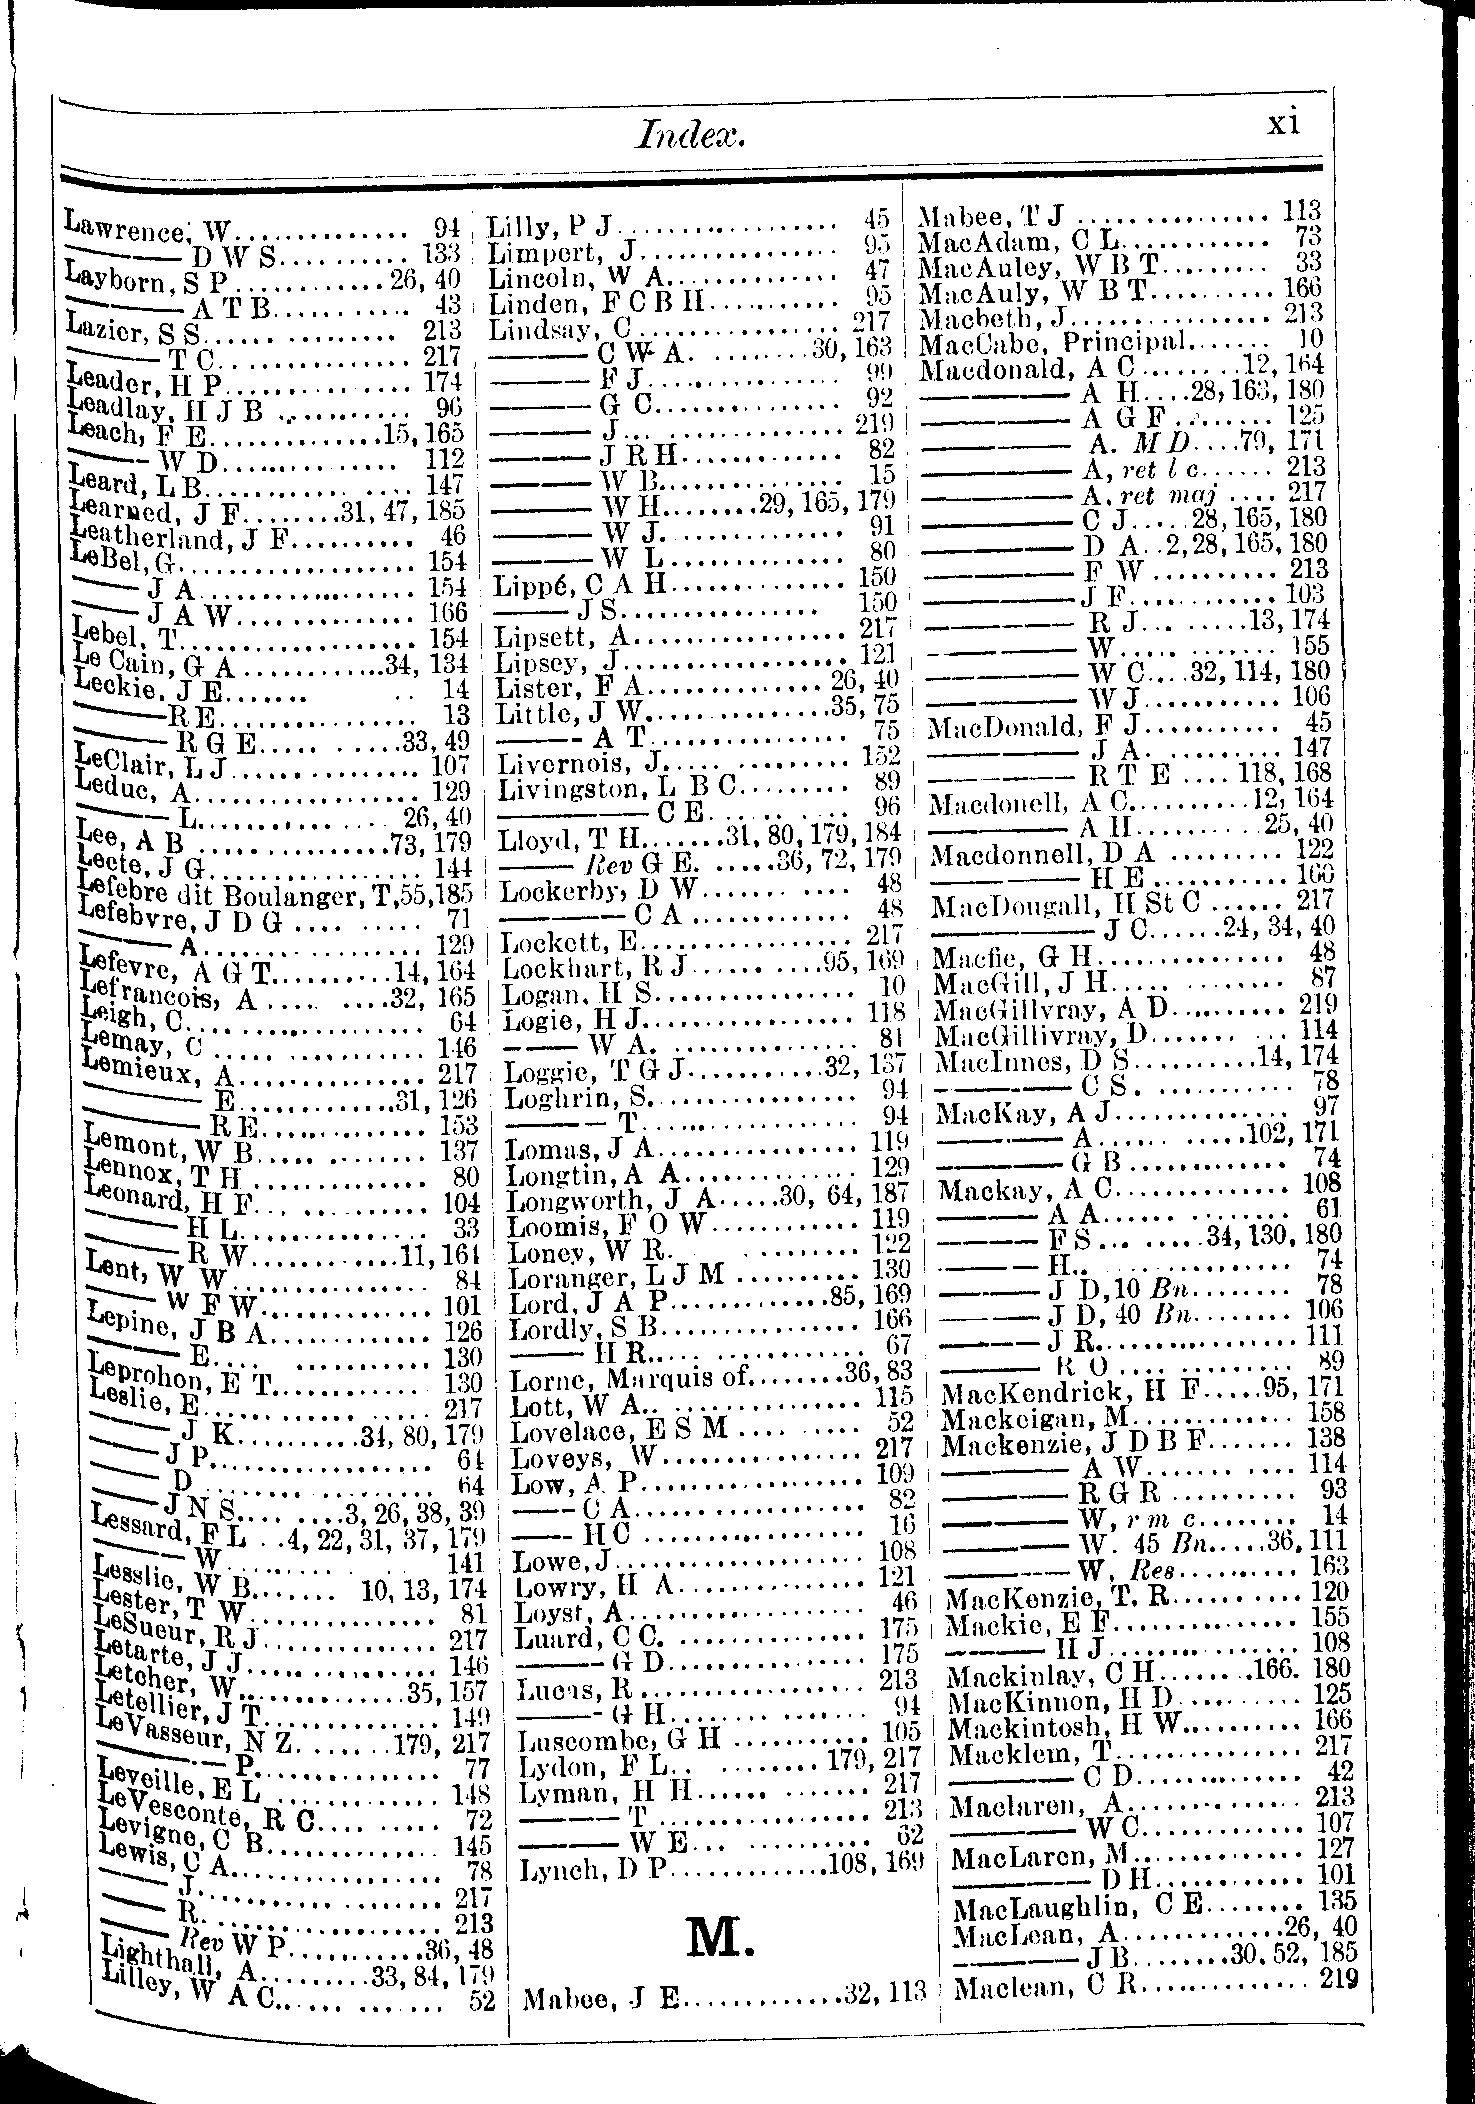 Index.
xi
Lawrence, W.............. 94
——— D W S.......... 133
Layborn, S P ............26, 40
——— A T B........... 43
Lazier, S S................ 213
——— T C............... 217
Leader, H P............... 174
Leadlay, H J B ........... 96
Leach, F E..............15, 165
——— W D.............. 112
Leard, L B................ 147
Learned, J F........31, 47, 185
Leatherland, J F.......... 46
LeBel, G................... 154
—— J A.................. 154
—— J A W............... 166
Lebel, T................... 154
Le Cain, G A ............34, 134
Leckie, J E....... .. 14
———R E................ 13
———R G E..... ......33, 49
LeClair, L J............... 107
Leduc, A.................. 129
——— L................26, 40
Lee, A B ................73, 179
Leete, J G................. 144
Lefebre dit Boulanger, T,55,185
Lefebvre, J D G .... ...... 71
——— A.................. 129
Lefevre, A G T..........14, 164
Lefrancois, A ..... .....32, 165
Leigh, C................... 64
Lemay, C ..... ............ 146
Lemieux, A............... 217
——— E.............31, 126
——— R E.............. 153
Lemont, W B..... ........ 137
Lennox, T H .............. 80
Leonard, H F... .......... 104
——— H L............... 33
——— R W............11, 161
Lent, W W................ 84
—— W F W.............. 101
Lepine, J B A............. 126
——— E.... ........... 130
Leprohon, E T............ 130
Leslie, E............. ..... 217
—— J K..........34, 80, 179
—— J P.................. 64
—— D .................. 64
—— J N S.... .....3, 26, 38, 39
Lessard, F L ..4, 22, 31, 37, 179
——— W................ 141
Lesslie, W B....... 10, 13, 174
Lester, T W............... 81
LeSueur, R J.............. 217
Letarte, J J................ 146
Letcher, W..............35, 157
Letellier, J T.............. 149
LeVasseur, N Z.......179, 217
——— P............... 77
Leveille, E L ............. 148
LeVesconte, R C.......... 72
Levigne, C B.............. 145
Lewis, C A................ 78
—— J.................... 217
—— R................... 213
—— Rev W P...........36, 48
Lighthall, A.........33, 84, 179
Lilley, W A C...... ....... 52
Lilly, P J................... 45
Limpert, J................. 95
Lincoln, W A.............. 47
Linden, F C B H.......... 95
Lindsay, C................. 217
——— C W A. ........30, 163
——— F J................ 99
——— G C............... 92
——— J... ............... 219
——— J R H............. 82
——— W B.............. 15
——— W H........29, 165, 179
——— W J.............. 91
——— W L............. 80
Lippé, C A H............. 150
—— J S................ 150
Lipsett, A................. 217
Lipsey, J.................. 121
Lister, F A...............26, 40
Little, J W...............35, 75
——— A T................ 75
Livernois, J..... ......... 152
Livingston, L B C......... 89
——— C E...... ...... 96
Lloyd, T H.......31, 80, 179, 184
—— Rev G E. .....36, 72, 179
Lockerby, D W....... .... 48
——— C A ............. 48
Lockett, E................. 217
Lockhart, R J...... .....95, 169
Logan, H S................ 10
Logie, H J................. 118
—— W A. ............... 81
Loggie, T G J...........32, 137
Loghrin, S................ 94
——— T................. 94
Lomas, J A................ 119
Longtin, A A.............. 129
Longworth, J A.....30, 64, 187
Loomis, F O W............ 119
Loney, W R. ......... 122
Loranger, L J M .......... 130
Lord, J A P.............85, 169
Lordly, S B................ 166
—— H R..... ............ 67
Lorne, Marquis of........36, 83
Lott, W A.. ............... 115
Lovelace, E S M .... ..... 52
Loveys, W................ 217
Low, A P.................. 109
—— C A.................. 82
—— H C ................. 16
Lowe, J.................... 108
Lowry, H A............... 121
Loyst, A................... 46
Luard, C C. ............... 175
——— G D................ 175
Lucas, R .................. 213
——— G H........ ....... 94
Luscombe, G H ........... 105
Lydon, F L.. ........179, 217
Lyman, H H...... ....... 217
——— T ................. 213
——— W E... .......... 62
Lynch, D P.............108, 169
M.
Mabee, J E.............32, 113
Mabee, T J ............... 113
MacAdam, C L............ 73
MacAuley, W B T......... 33
MacAuly, W B T.......... 166
Macbeth, J................ 213
MacCabe, Principal....... 10
Macdonald, A C.........12, 164
——— A H....28, 163, 180
——— A G F......... 125
——— A. M D....79, 171
——— A, ret l c...... 213
——— A, ret maj .... 217
——— C J.....28, 165, 180
——— D A..2,28, 165, 180
——— F W.......... 213
——— J F............ 103
——— R J... ......13, 174
——— W..... ........ 155
——— W C....32, 114, 180
——— W J........... 106
MacDonald, F J........... 45
——— J A.......... 147
——— R T E ....118, 168
Macdonell, A C..........12, 164
——— A H..........25, 40
Macdonnell, D A ......... 122
——— H E........... 160
MacDougall, H St C ...... 217
——— J C......24, 34, 40
Macfie, G H............... 48
MacGill, J H..... ........ 87
MacGillvray, A D.......... 219
MacGillivray, D....... ... 114
MacInnes, D S...........14, 174
——— C S. ........... 78
MacKay, A J.............. 97
——— A...... ......102, 171
——— G B............. 74
Mackay, A C.............. 108
——— A A...... ........ 61
——— F S... ......34, 130, 180
——— H.. ............... 74
——— J D, 10 Bn........ 78
——— J D, 40 Bn........ 106
——— J R................ 111
——— R O.... ......... 89
MacKendrick, H F.....95, 171
Mackeigan, M............. 158
Mackenzie, J D B F....... 138
——— A W....... .... 114
——— R G R .......... 93
——— W, r m c........ 14
——— W. 45 Bn.....36, 111
——— W, Res.......... 163
MacKenzie, T. R.......... 120
Mackie, E F............... 155
——— H J............... 108
Mackinlay, C H........166. 180
MacKinnon, H D.......... 125
Mackintosh, H W.......... 166
Macklem, T............... 217
——— C D............. 42
Maclaren, A.............. 213
——— W C............. 107
MacLaren, M.............. 127
——— D H............ 101
MacLaughlin, C E........ 135
MacLean, A.............26, 40
——— J B........30, 52, 185
Maclean, C R.............. 219